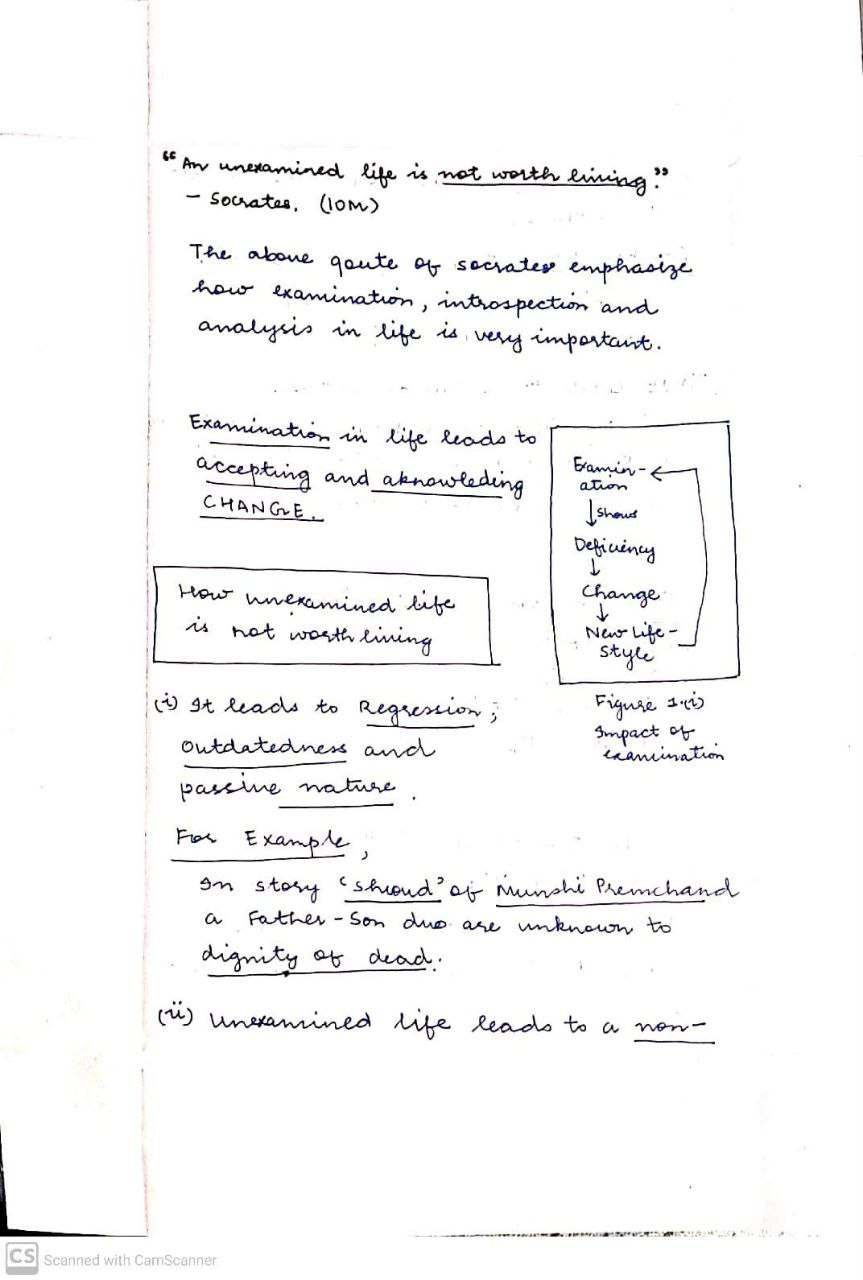 "An unexamined life is not worth living."
- Socrates. (10M)
The above qoute of socrates emphasize
how examination, introspection and
analysis in life is very important.
Examination in life leads to
accepting and aknowleding
CHANGE.
Examin-
ation
↓ shows
Deficiency
↓
Change
↓
New Life-
style
Figure 1.(i)
Impact of
examination
How unexamined life
is not worth living
(i) It leads to Regression,
outdatedness and
passive nature.
For Example,
In story 'shroud' of Munshi Premchand
a Father-Son duo are unknown to
dignity of dead.
(ii) Unexamined life leads to a non-
CS Scanned with CamScanner